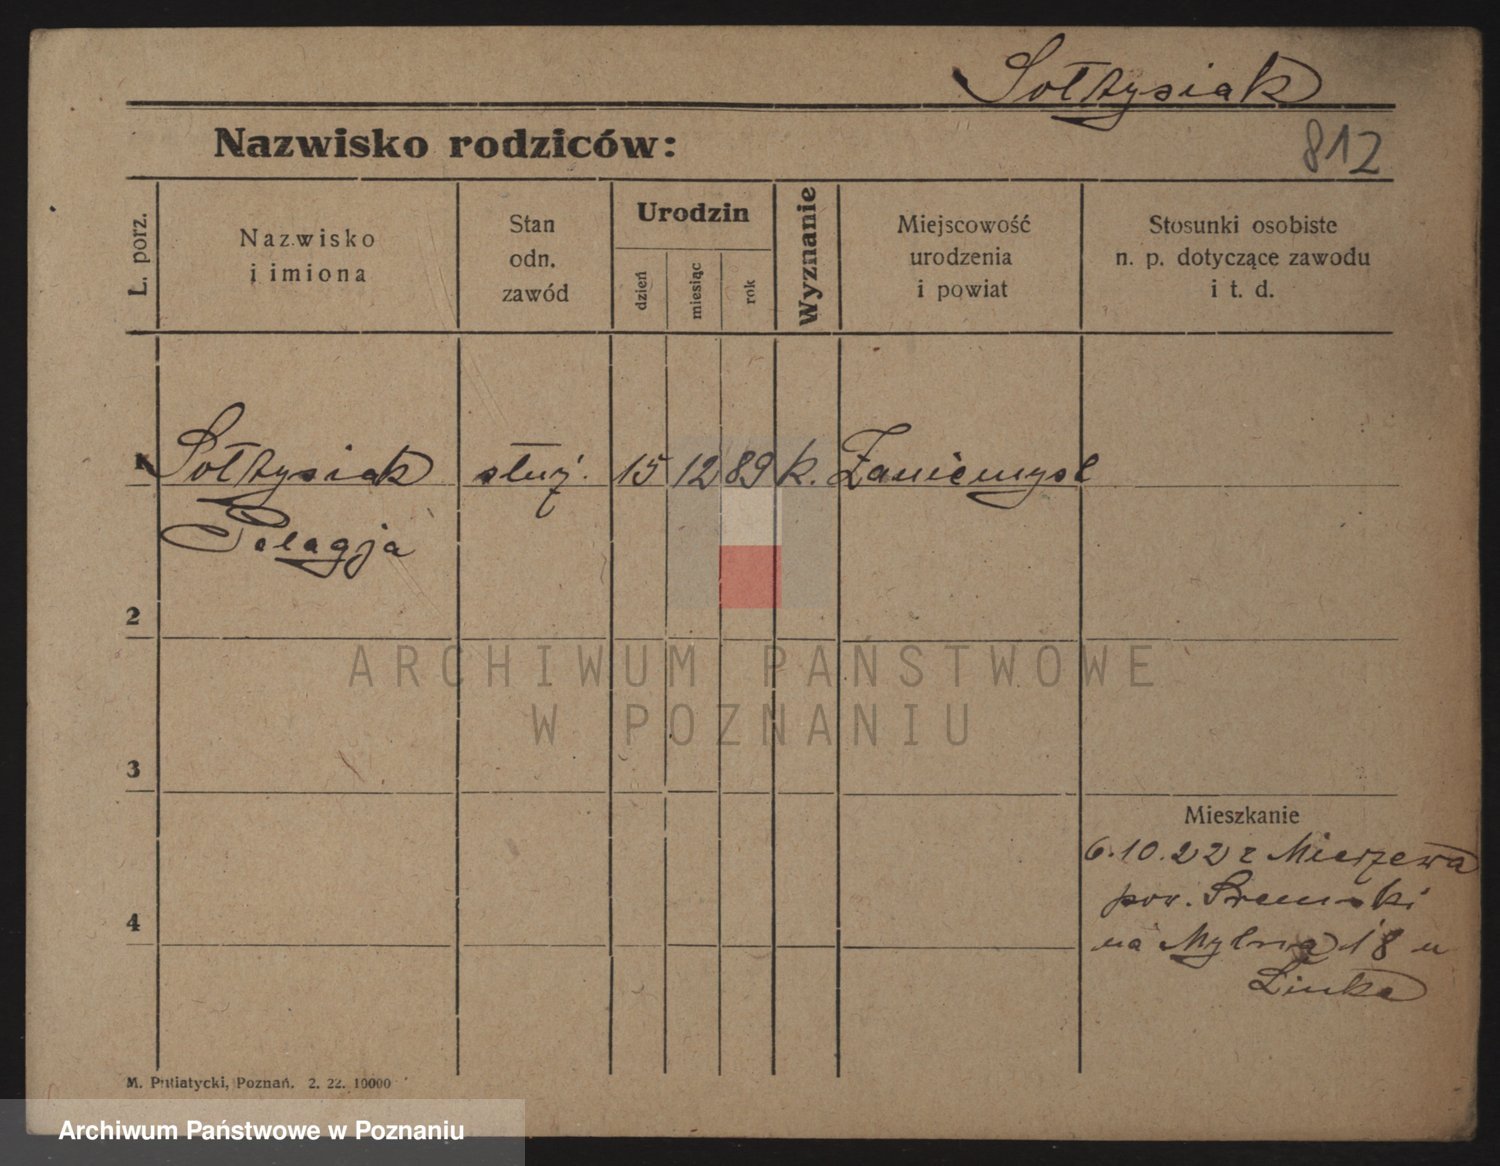 Sołtysiak
Nazwisko rodziców:
812
L. porz.
Nazwisko
i imiona
Stan
odn.
zawód
Urodzin
dzień
miesiąc
rok
Wyznanie
Miejscowość
urodzenia
i powiat
Stosunki osobiste
n. p. dotyczące zawodu
i t. d.
1 Sołtysiak służ. 15 12 89 k. Zaniemysl
Pelagja
2
ARCHIWUM PAŃSTWOWE
W POZNANIU
3
Mieszkanie
6.10.22 z Mierzewa
pow. Sremski
4
na Mylną 18 u
Linke
M. Putiatycki, Poznań. 2. 22. 10000
Archiwum Państwowe w Poznaniu